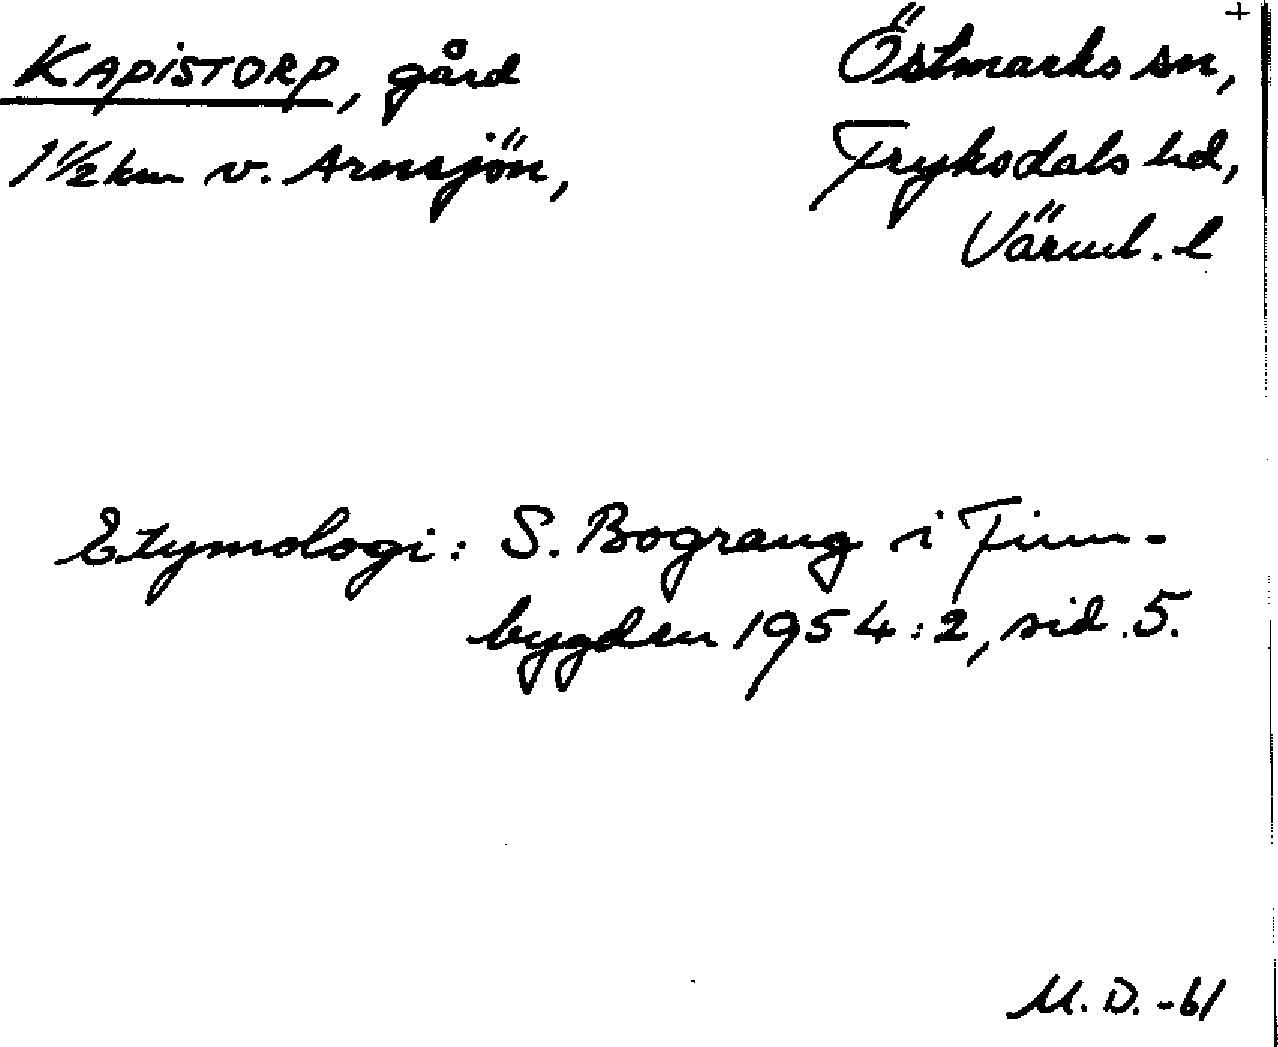 KAPISTORP, gård
1 1/2 km v. Arnsjön,
Östmarks sn,
Fryksdals hd,
Värml. l
Etymologi: S. Bograng i Finn-
bygden 1954:2, sid. 5.
M. D. -61